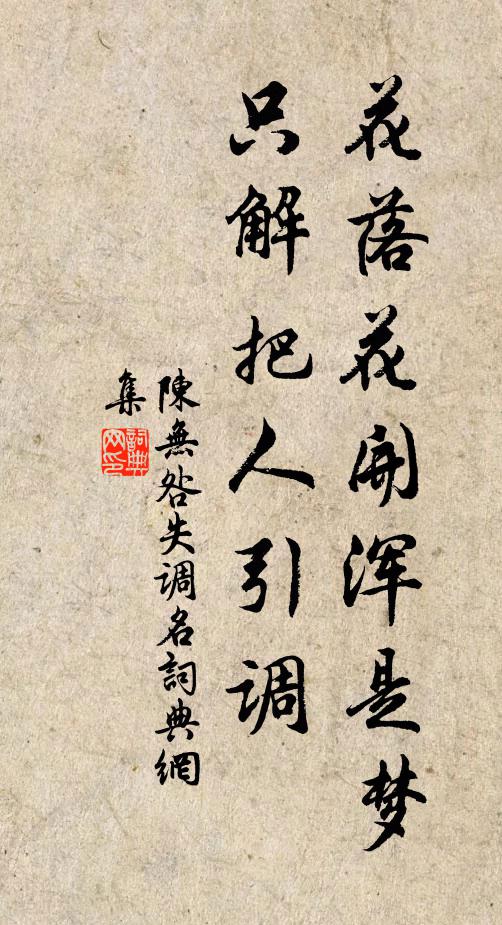 花落花开浑是梦
只解把人引调
陳無咎失调名詞典網
集
詞典
网印